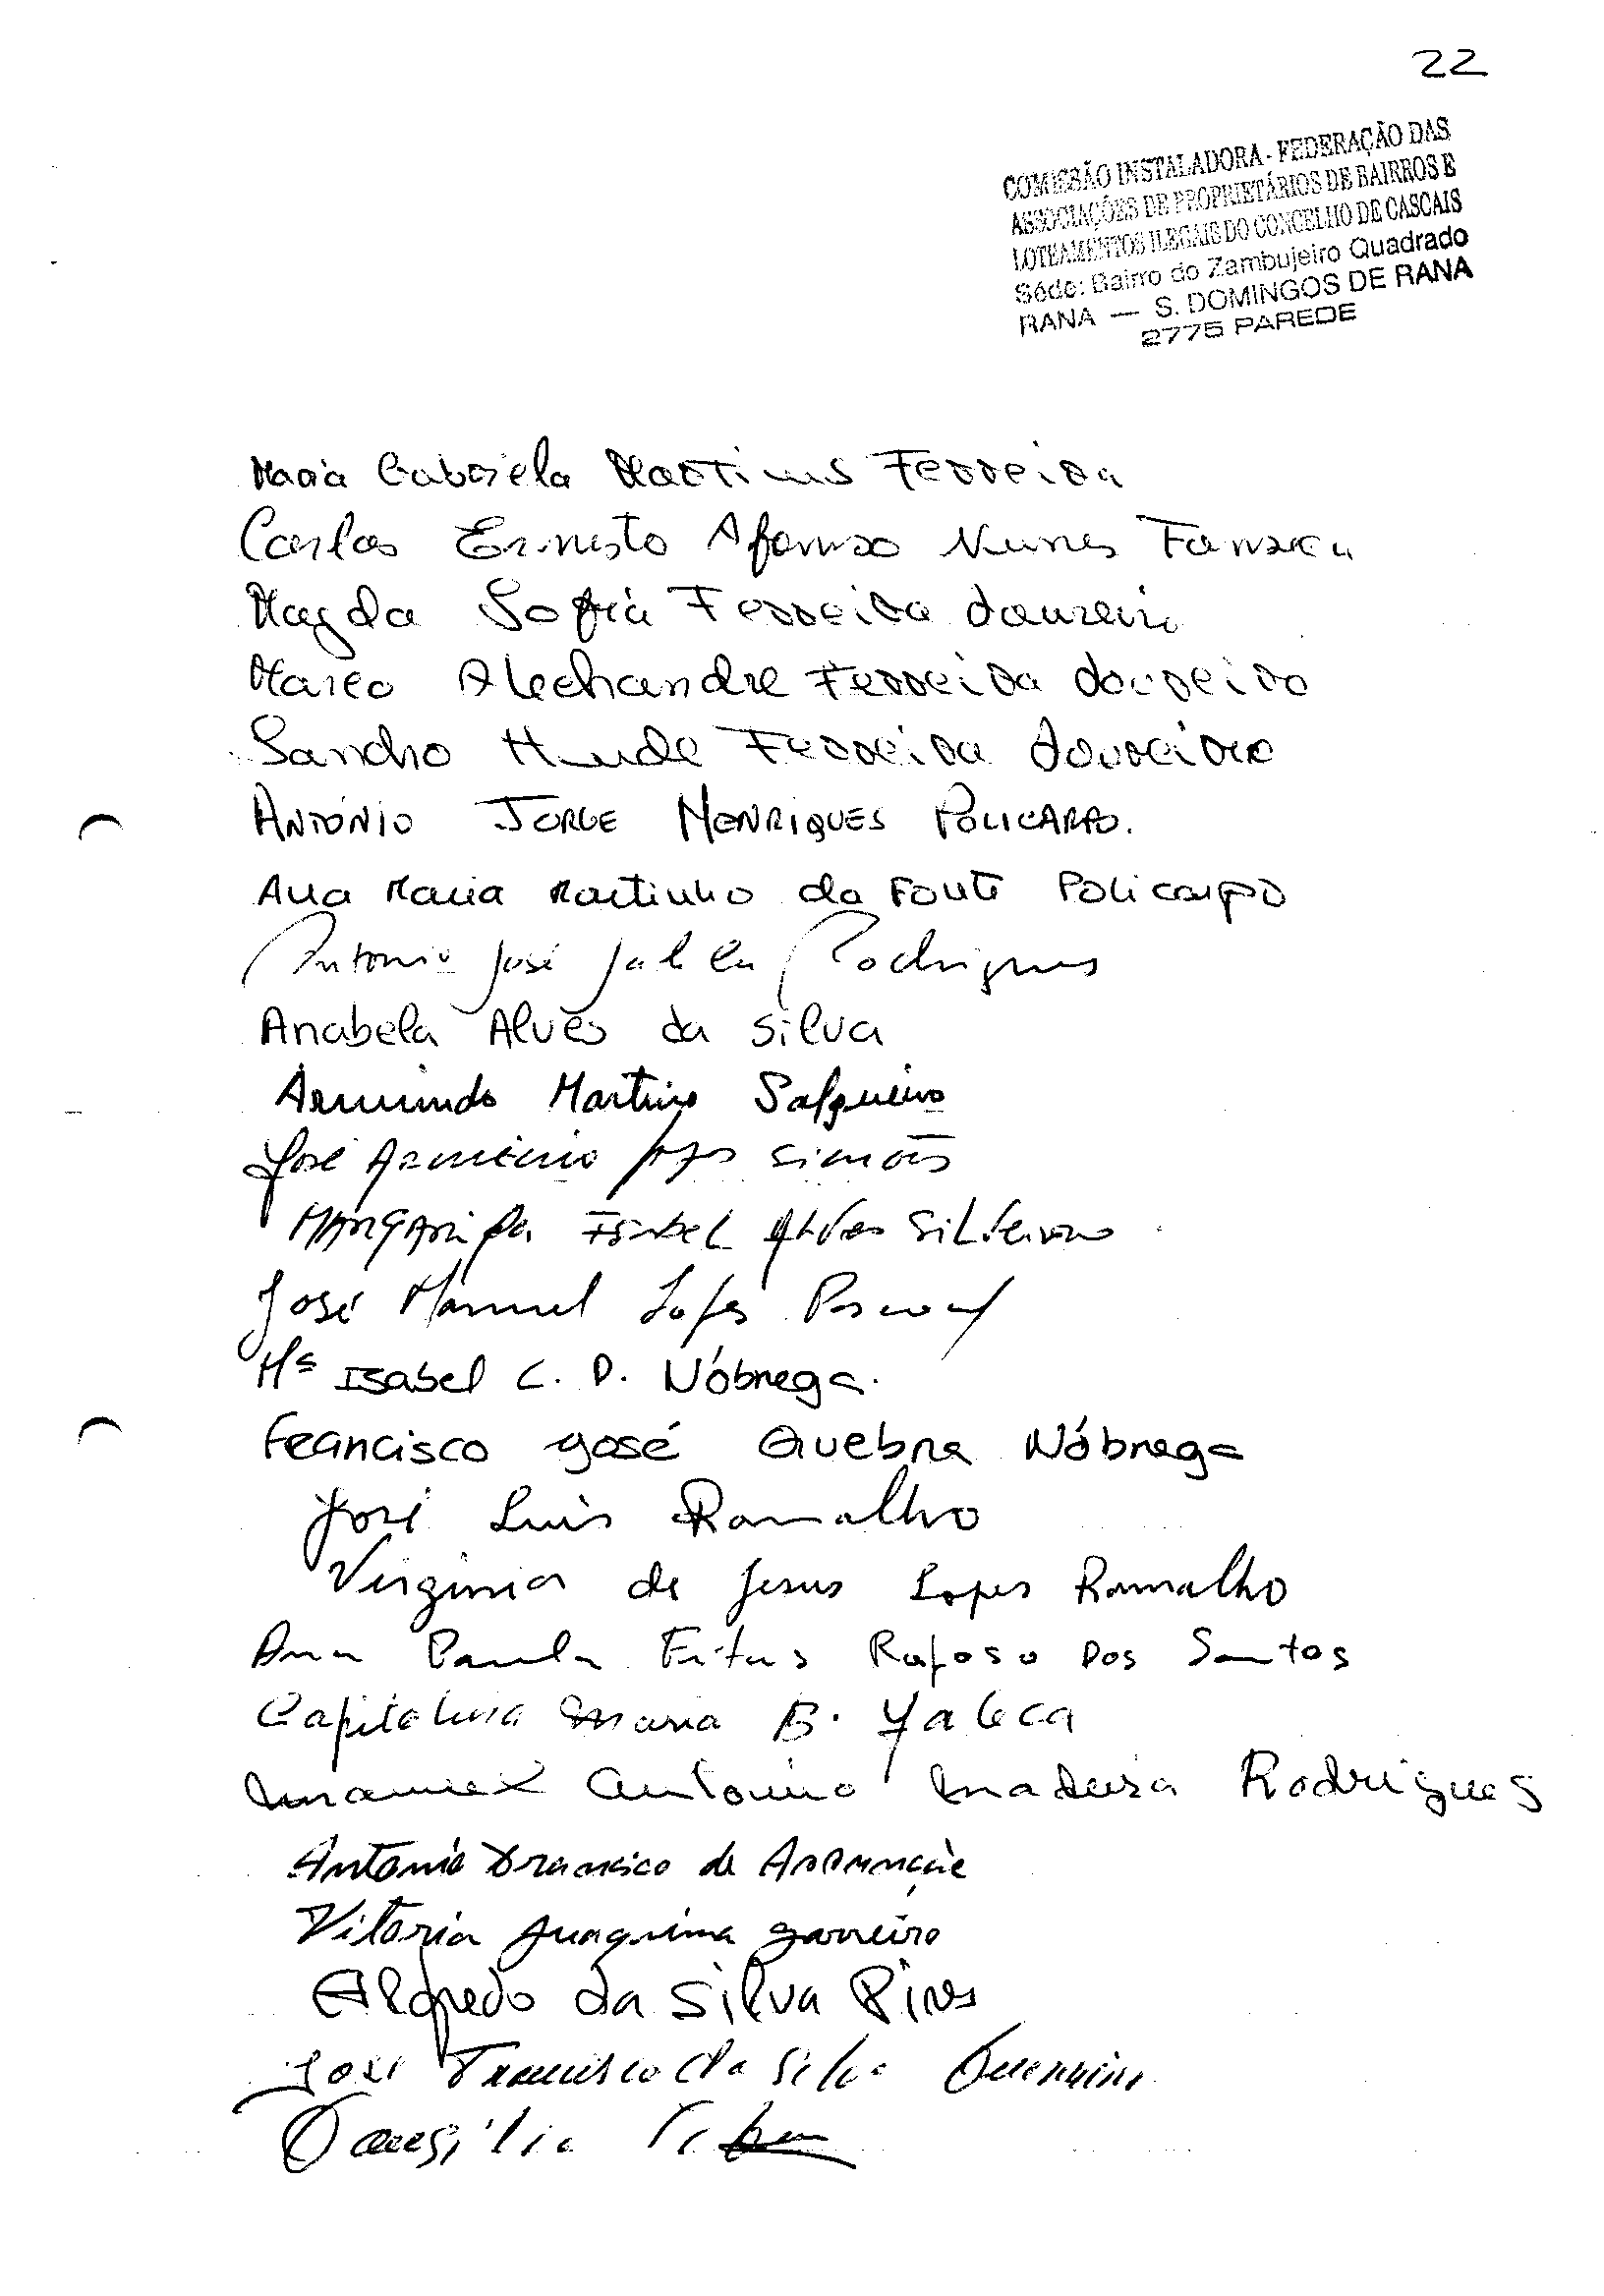 22
COMISSÃO INSTALADORA - FEDERAÇÃO DAS
ASSOCIAÇÕES DE PROPRIETÁRIOS DE BAIRROS E
LOTEAMENTOS ILEGAIS DO CONCELHO DE CASCAIS
Séde: Bairro do Zambujeiro Quadrado
RANA — S. DOMINGOS DE RANA
2775 PAREDE
Maria Gabriela Martins Ferreira
Carlos Ernesto Afonso Nunes Fonseca
Magda Sofia Ferreira Loureiro
Marco Alechandre Ferreira Loureiro
Sancho Ferreira Loureiro
ANTÓNIO JORGE HENRIQUES POLICARPO.
Ana Maria Martinho da Fonte Policarpo
Antonio José Rodrigues
Anabela Alves da Silva
Armindo Martins Salgueiro
José Armenio Simões
MARGARIDA ISABEL Alves
José Manuel Lopes Pascoal
Mª Isabel C. D. Nóbrega.
Francisco José Quebra Nóbrega
José Luis Ramalho
Virginia de Jesus Lopes Ramalho
Ana Paula Raposo Dos Santos
Capitolina Maria B.
Manuel Antonio Madeira Rodrigues
Antonio Francisco de
Vitoria Juaquima
Alfredo da Silva Pires
José Francisco da Silva